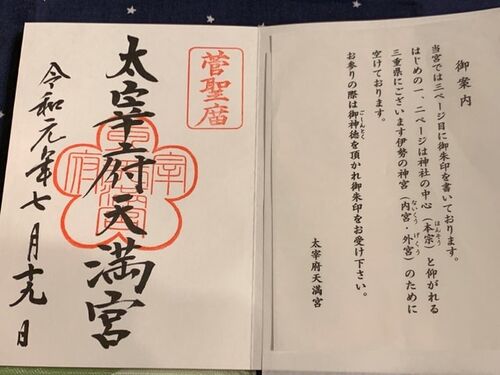 御案内
当宮では三ページ目に御朱印を書いております。
はじめの一、二ページは神社の中心（本宗）と仰がれる
ほんそう
三重県にございます伊勢の神宮（内宮・外宮）のために
ないくう　げくう
空けております。
お参りの際は御神徳を頂かれ御朱印をお受け下さい。
ごしんとく
太宰府天満宮
菅聖庿
太宰府天満宮
令和元年七月十九日